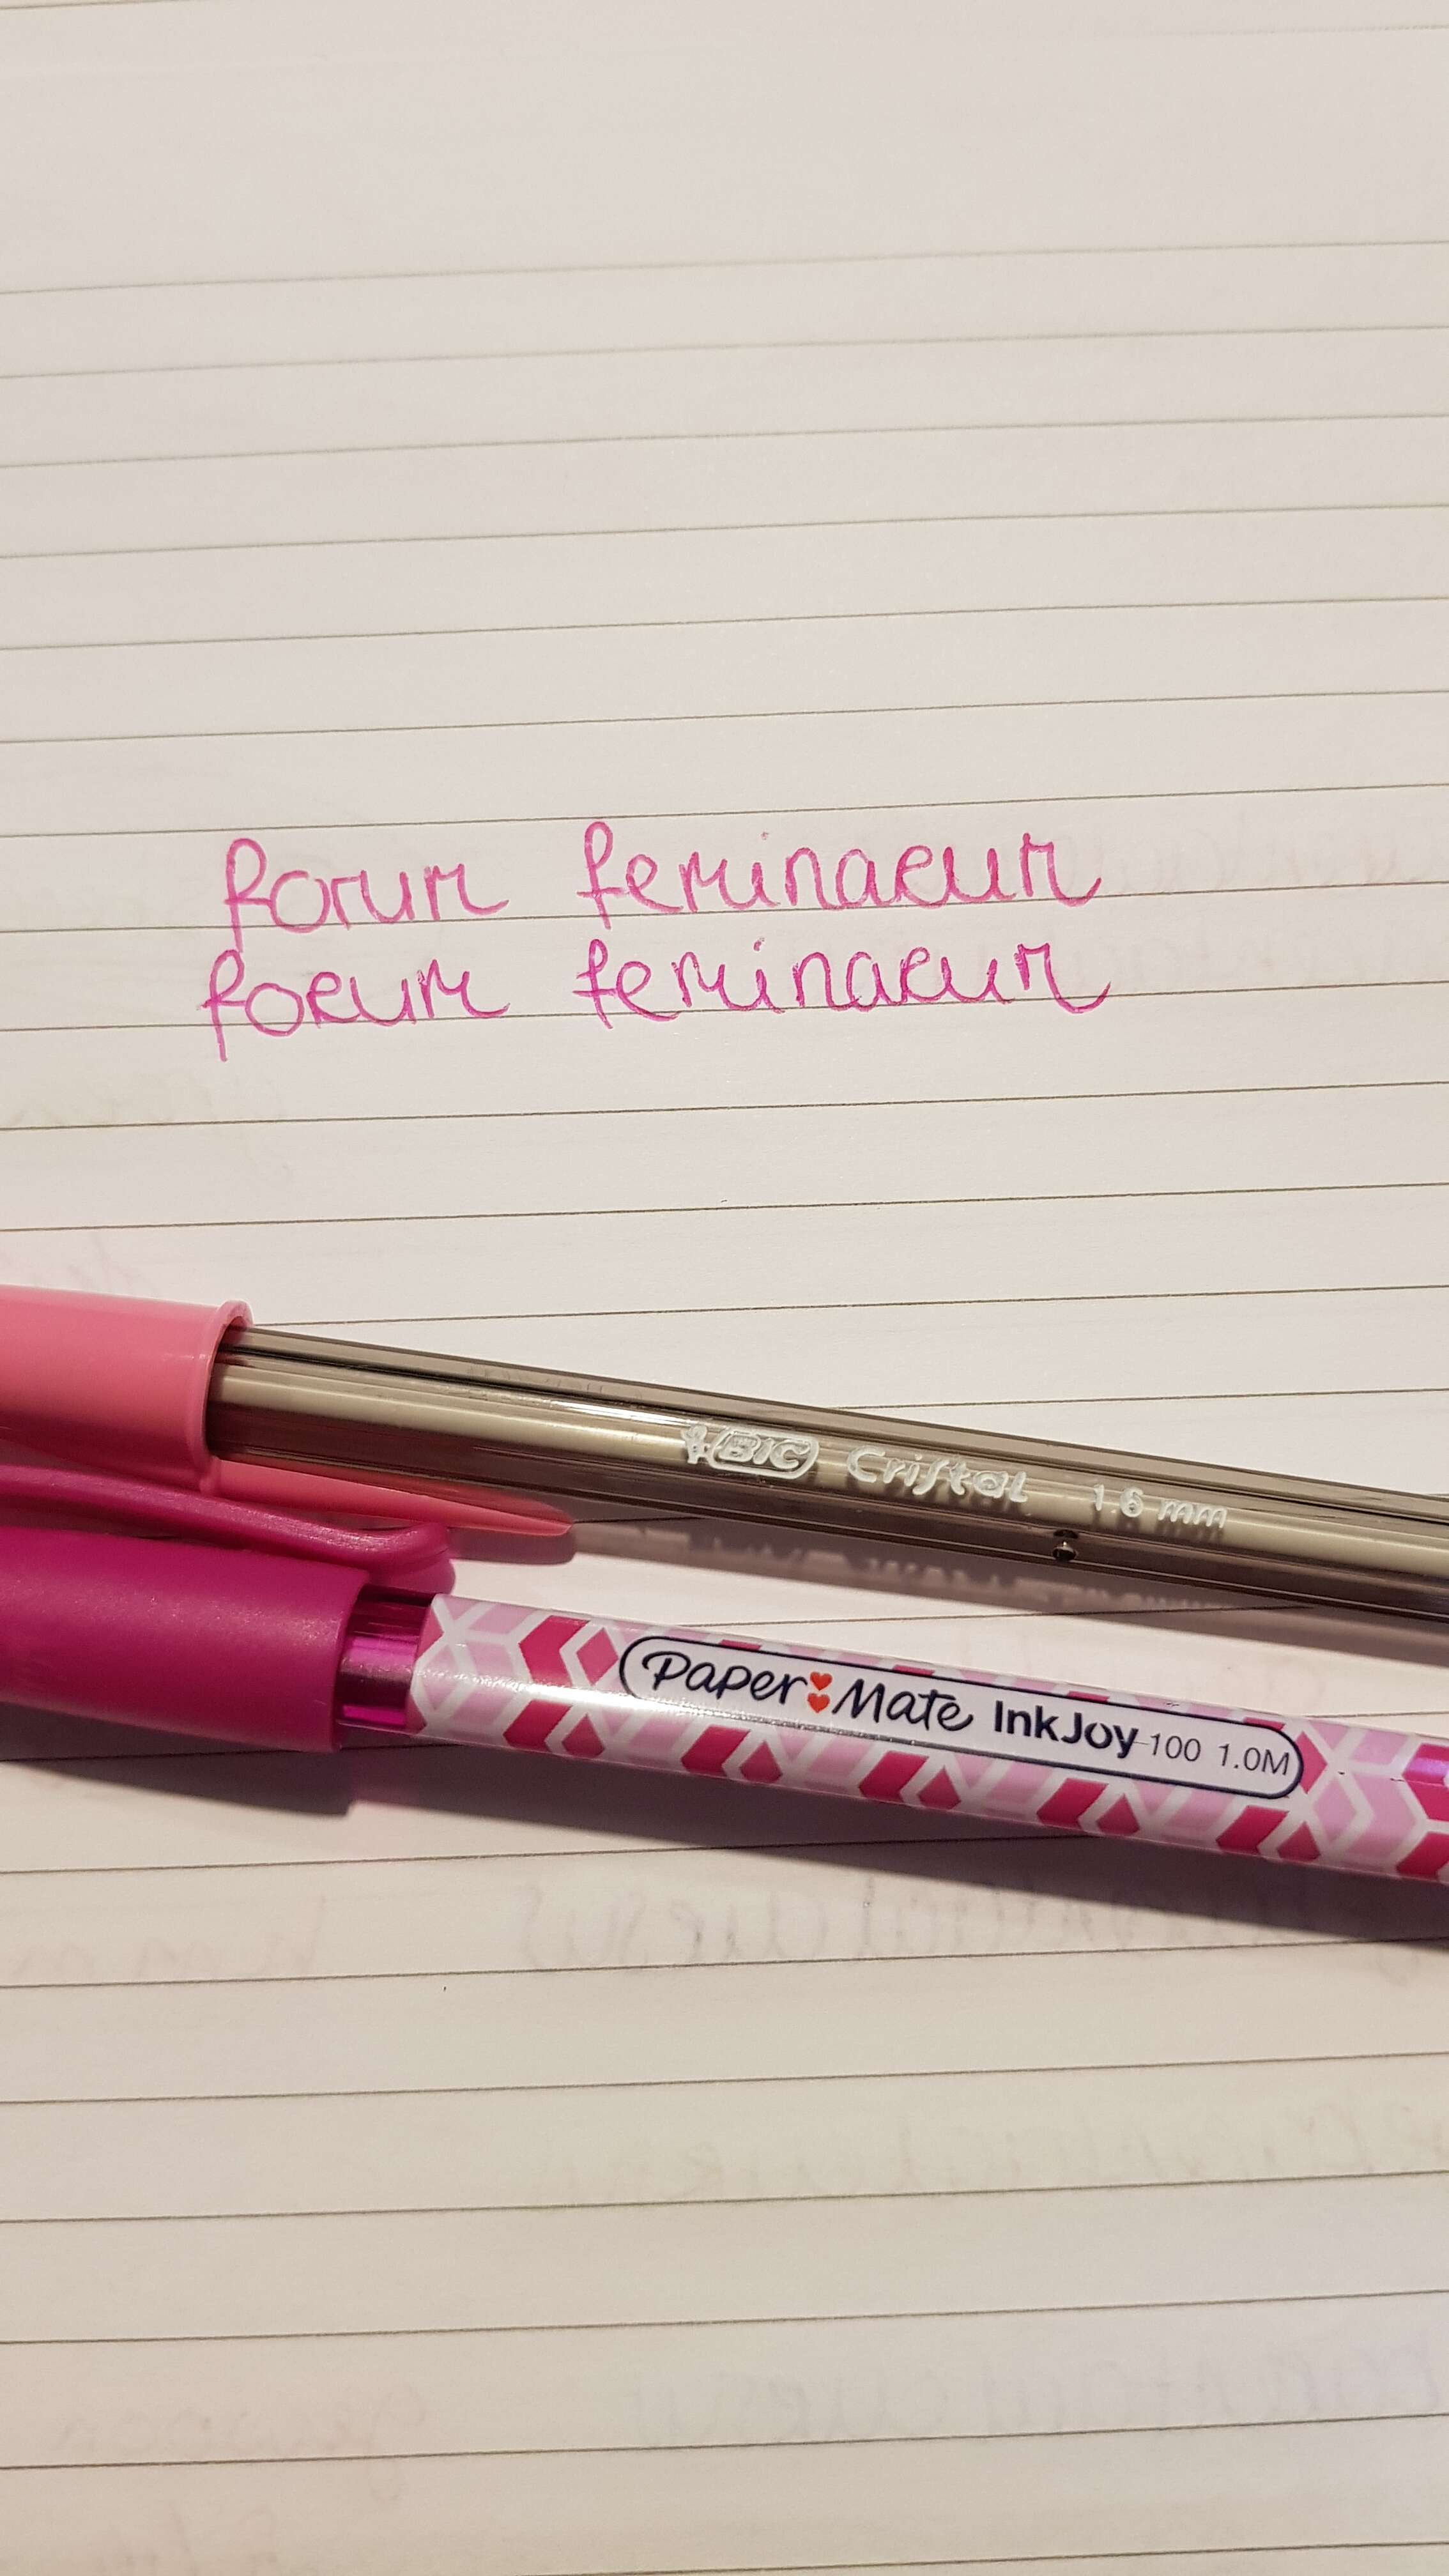 forum feminarum
forum feminarum
BIC Cristal 1.6 mm
Paper Mate InkJoy 100 1.0M